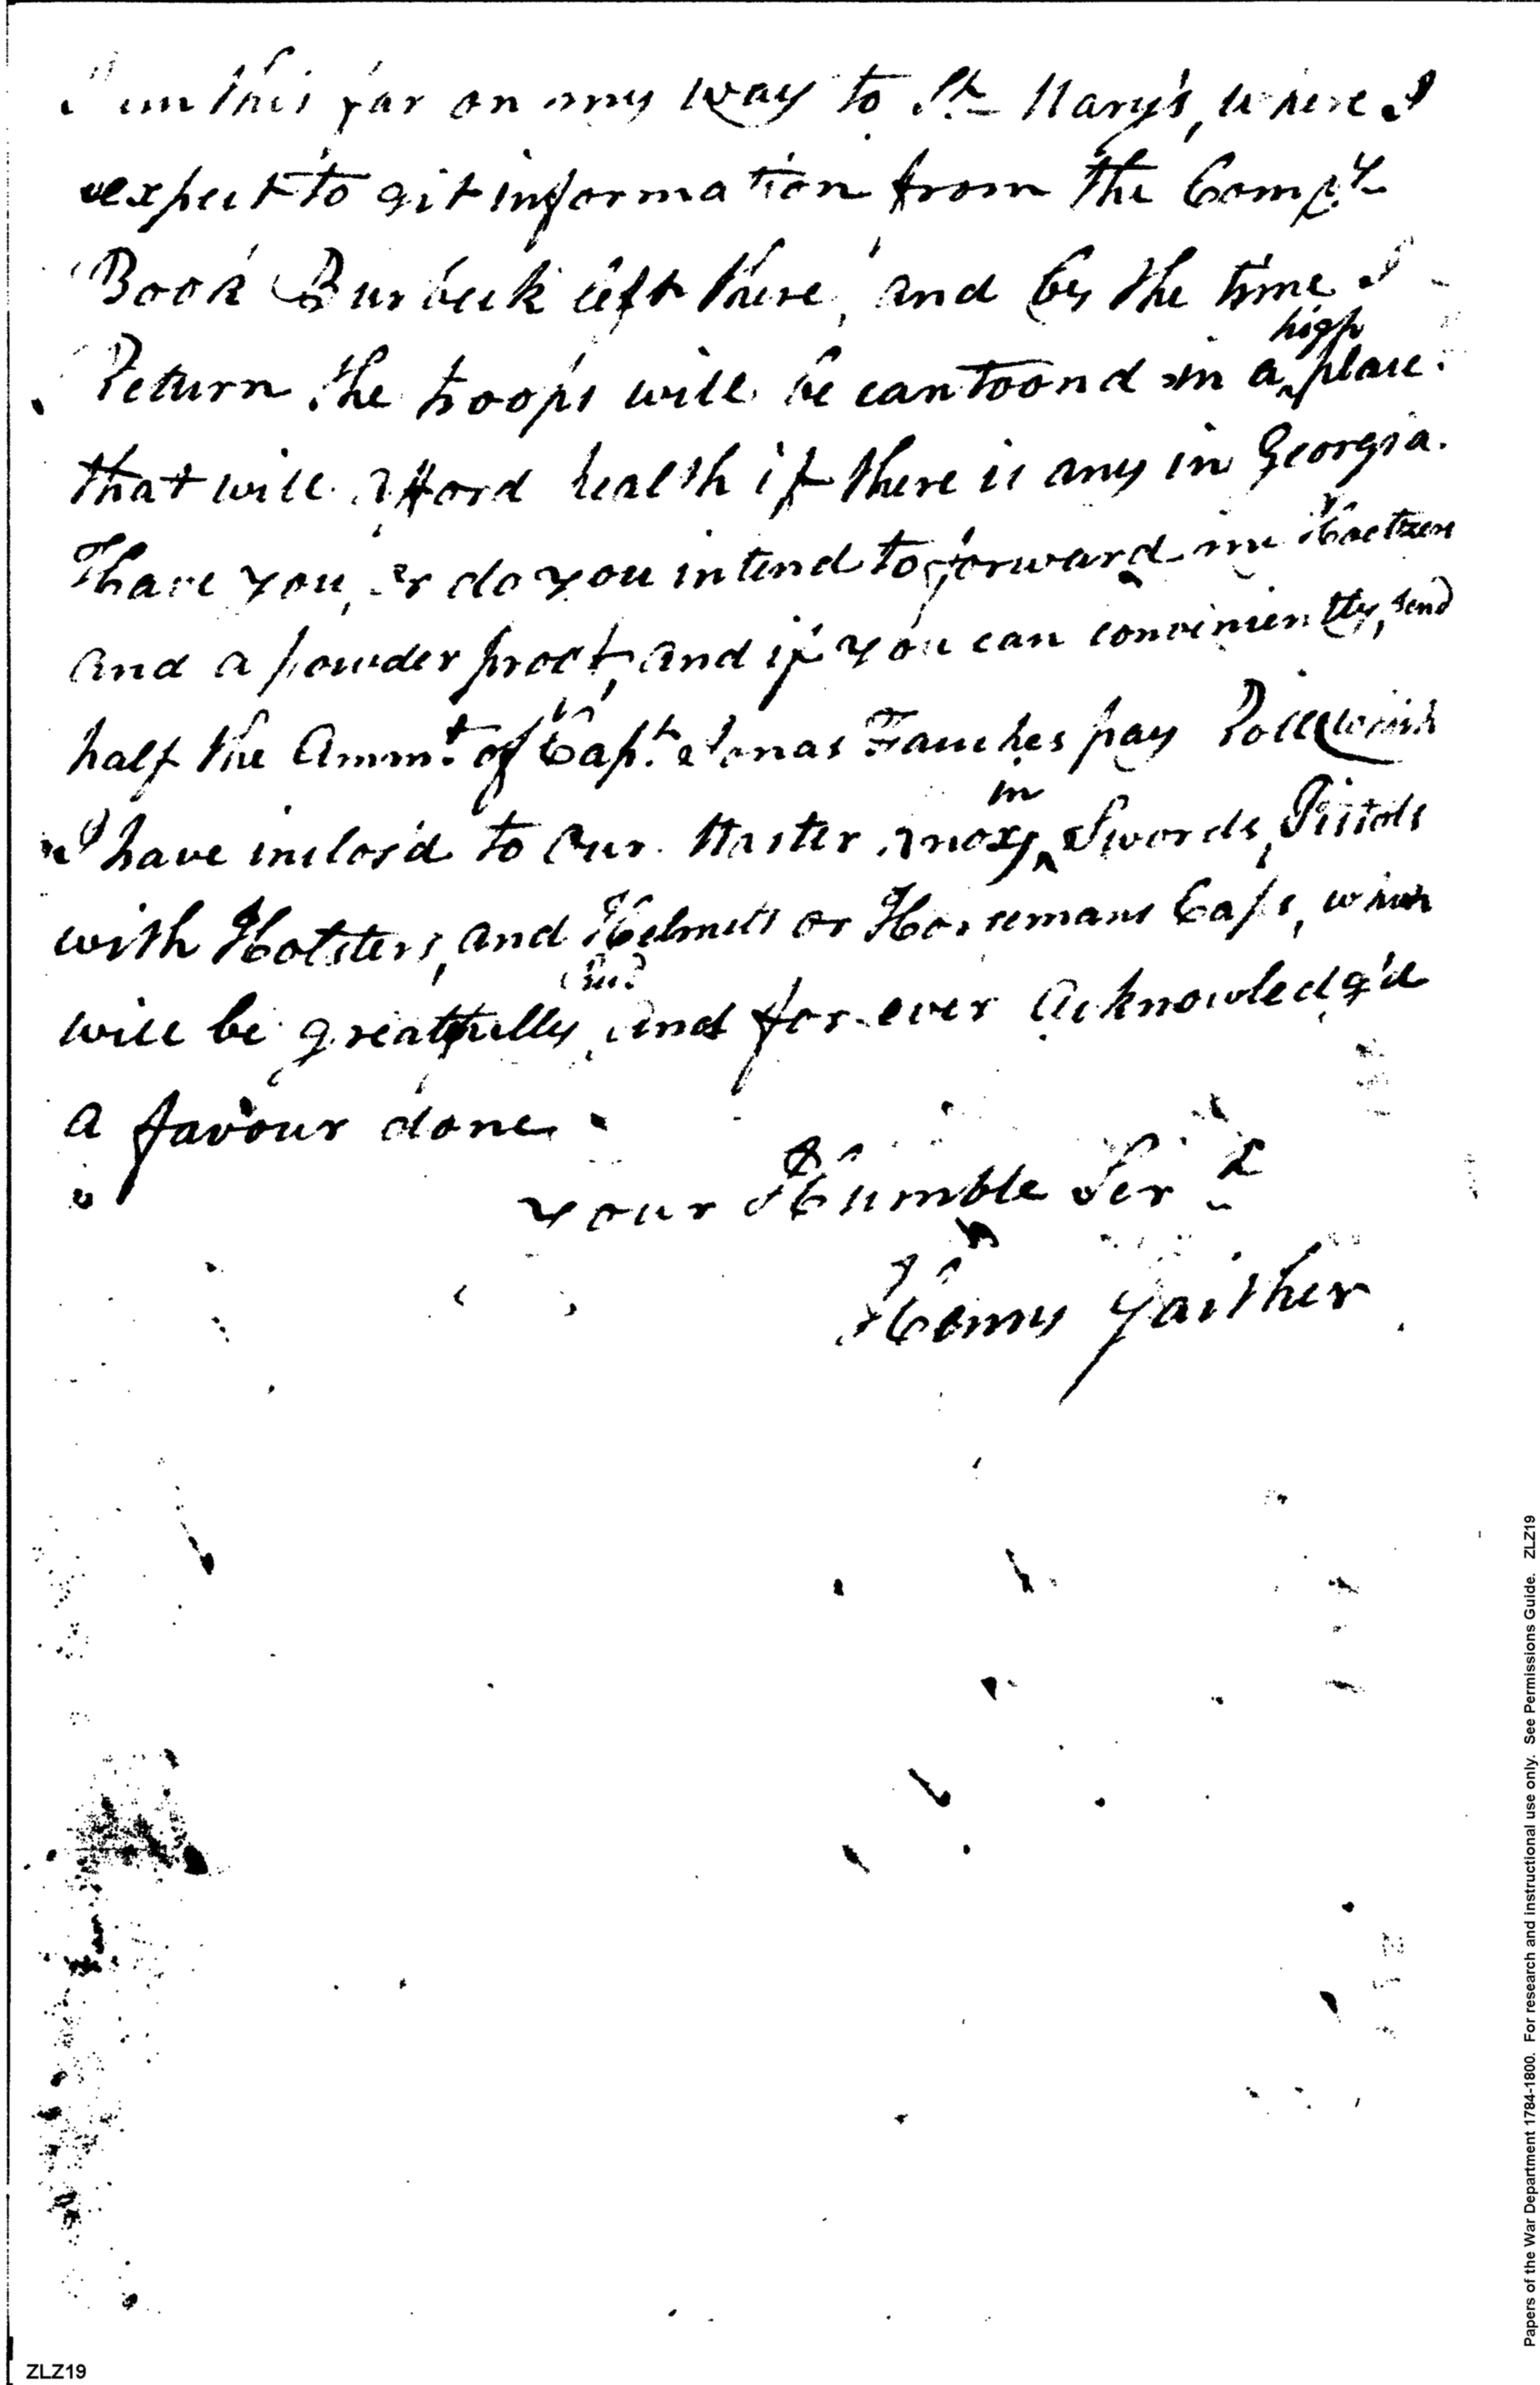 I am this far on my way to St. Mary's, where I
expect to git information from the Compy.
Book Burbeck left there, and by the time I
Return the troops will be cantoond in a high place
that will afford health if there is any in Georgia.
Have you, or do you intend to forward me
and a powder proof, and if you can conveniently, send
half the Ammt. of Capt. Jonas Fauches pay Roll which
I have inclos'd to our Master Knox, in Swords, Pistols
with Holsters, and Helmets or Horsemans Caps, which
will be greatfully and for ever acknowledg'd
a favour done
your Humble Sert.
Henry Gaither
ZLZ19
Papers of the War Department 1784-1800. For research and instructional use only. See Permissions Guide. ZLZ19